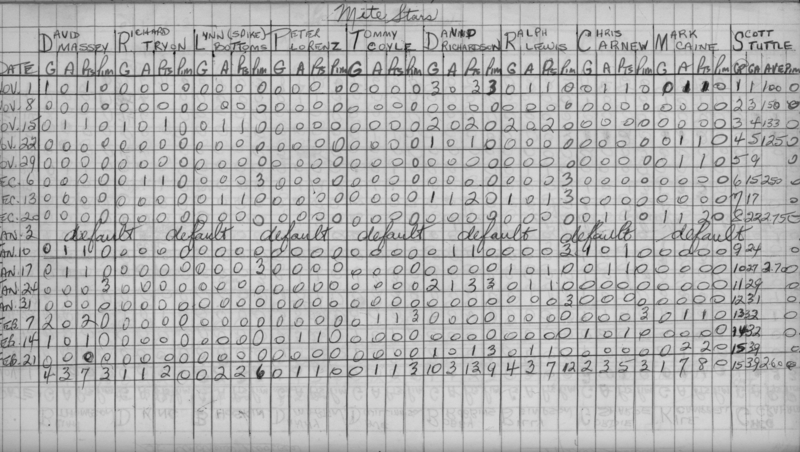 Mite Stars
DAVID RICHARD LYNN (SPIKE) PETER TOMMY DANNY RALPH CHRIS MARK SCOTT
MASSEY TRYON BOTTOMS LORENZ COYLE RICHARDSON LEWIS CARNEW CAINE TUTTLE
DATE G A Pts Pim G A Pts Pim G A Pts Pim G A Pts Pim G A Pts Pim G A Pts Pim G A Pts Pim G A Pts Pim G A Pts Pim GP GA AVE Pim
NOV. 1 1 0 1 0 0 0 0 0 0 0 0 0 0 0 0 0 0 0 0 0 3 0 3 3 0 1 1 0 0 1 1 0 0 1 1 0 1 1 1 00 0
NOV. 8 0 0 0 0 0 0 0 0 0 0 0 0 0 0 0 0 0 0 0 0 0 0 0 0 0 0 0 0 0 0 0 0 0 0 0 0 2 3 1 50 0
NOV. 15 0 1 1 0 1 0 1 0 0 1 1 0 0 0 0 0 0 0 0 0 2 0 2 0 2 0 2 0 0 0 0 0 0 0 0 0 3 4 1 33 0
NOV. 22 0 0 0 0 0 0 0 0 0 0 0 0 0 0 0 0 0 0 0 0 1 0 1 0 0 0 0 0 0 0 0 0 0 1 1 0 4 5 1 25 0
NOV. 29 0 0 0 0 0 0 0 0 0 0 0 0 0 0 0 0 0 0 0 0 0 0 0 0 0 0 0 0 0 0 0 0 0 1 1 0 5 9
DEC. 6 0 0 0 0 0 1 1 0 0 0 0 3 0 0 0 0 0 0 0 0 0 0 0 0 0 0 0 3 0 0 0 0 0 0 0 0 6 15 2 50 0
DEC. 13 0 0 0 0 0 0 0 0 0 1 1 0 0 0 0 0 0 0 0 0 1 1 2 0 1 0 1 3 0 0 0 0 0 0 0 0 7 17
DEC. 20 0 0 0 0 0 0 0 0 0 0 0 0 0 0 0 0 0 0 0 0 0 0 0 0 0 0 0 0 1 1 0 1 1 2 0 8 22 2 75 0
JAN. 3 default default default default default default default
JAN. 10 0 1 1 0 0 0 0 0 0 0 0 0 0 0 0 0 0 0 0 0 0 1 1 0 0 0 0 3 1 0 1 0 0 0 0 0 9 24
JAN. 17 0 0 0 0 0 0 0 0 0 0 0 3 0 0 0 0 0 0 0 0 0 0 0 0 1 0 1 0 0 1 1 0 0 0 0 0 10 27 2 70 0
JAN. 24 0 0 0 3 0 0 0 0 0 0 0 0 0 0 0 0 0 0 0 0 2 1 3 3 0 1 1 0 0 0 0 0 0 0 0 0 11 29
JAN. 31 0 0 0 0 0 0 0 0 0 0 0 0 0 0 0 0 0 0 0 0 0 0 0 0 0 0 0 3 0 0 0 0 0 0 0 0 12 31
FEB. 7 2 0 2 0 0 0 0 0 0 0 0 0 0 0 0 0 0 1 1 3 0 0 0 0 0 0 0 0 0 0 0 3 0 1 1 0 13 32
FEB. 14 1 0 1 0 0 0 0 0 0 0 0 0 0 1 1 0 0 0 0 0 0 0 0 0 0 0 0 0 1 0 1 0 0 0 0 0 14 32
FEB. 21 0 0 0 0 0 0 0 0 0 0 0 0 0 0 0 0 0 0 0 0 1 0 1 3 0 1 1 0 0 0 0 0 0 2 2 0 15 39
4 3 7 3 1 1 2 0 0 2 2 6 0 1 1 0 0 1 1 3 10 3 13 9 4 3 7 12 2 3 5 3 1 7 8 0 15 39 2 60 0